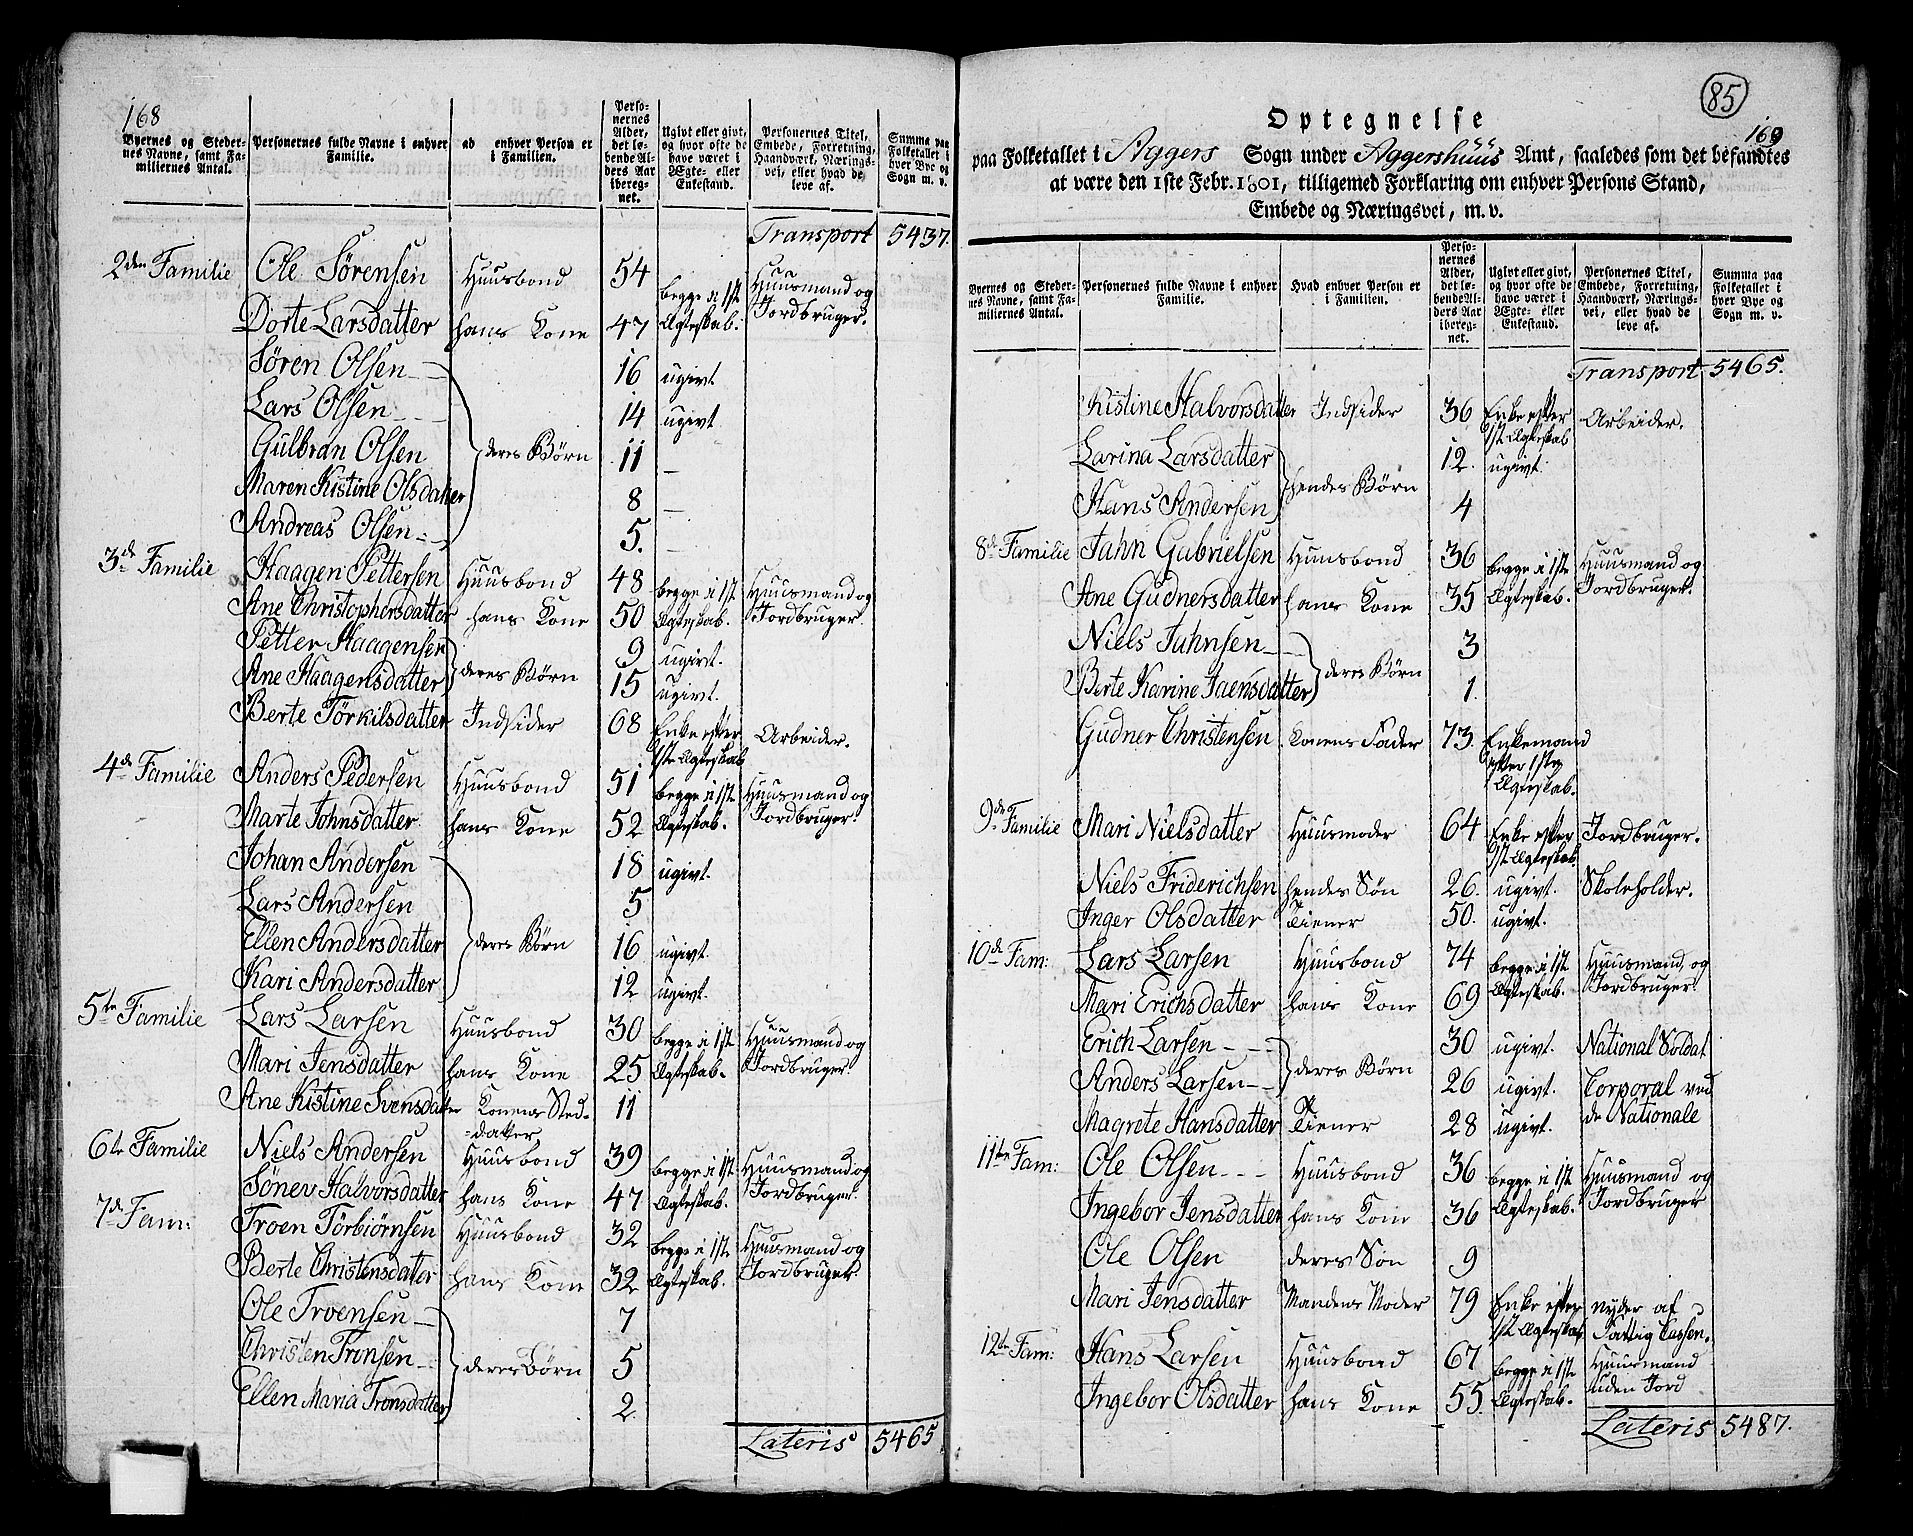 168
Byernes og Stedernes Navne, samt Familiernes Antal. | Personernes fulde Navne i enhver Familie. | ad enhver Person er i Familien. | Personernes Alder, det løbende Alders Aar iberegnet. | Ugivt eller givt, og hvor ofte de have været i Ægte- eller Enkestand. | Personernes Titel, Embede, Forretning, Haandværk, Næringsvei, eller hvad de leve af. | Summa paa Folketallet i hver Bye og Sogn m. v.
Transport 5437.
2den Familie | Ole Sørensen | Huusbond | 54 | begge i 1ste Ægteskab. | Huusmand og Jordbruger.
Dorte Larsdatter | hans Kone | 47
Søren Olsen | deres Børn | 16 | ugivt
Lars Olsen | 14 | ugivt
Gulbran Olsen | 11 | —
Maren Kistine Olsdatter | 8 | —
Andreas Olsen | 5. | —
3de Familie | Haagen Pettersen | Huusbond | 48 | begge i 1ste Ægteskab. | Huusmand og Jordbruger.
Ane Christophersdatter | hans Kone | 50
Petter Haagensen | deres Børn | 9 | ugivt.
Ane Haagensdatter | 15 | ugivt.
Berte Törkilsdatter | Indsider | 68 | Enke efter 1ste Ægteskab | Arbeider.
4de Familie | Anders Pedersen | Huusbond | 51 | begge i 1ste Ægteskab. | Huusmand og Jordbruger.
Marte Johnsdatter | hans Kone | 52
Johan Andersen | deres Børn | 18 | ugivt.
Lars Andersen | 5
Ellen Andersdatter | 16 | ugivt.
Kari Andersdatter | 12 | ugivt.
5te Familie | Lars Larsen | Huusbond | 30 | begge i 1ste Ægteskab. | Huusmand og Jordbruger.
Mari Jensdatter | hans Kone | 25
Ane Kistine Svensdatter | Konens Steddatter | 11
6te Familie | Niels Andersen | Huusbond | 39 | begge i 1ste Ægteskab. | Huusmand og Jordbruger.
Sönev Halvorsdatter | hans Kone | 47
7de Fam: | Troen Törbiörnsen | Huusbond | 32 | begge i 1ste Ægteskab. | Huusmand og Jordbruger.
Berte Christensdatter | hans Kone | 32
Ole Troensen | deres Børn | 7
Christen Tronsen | 5
Ellen Maria Tronsdatter | 2
Lateris 5465
85
169
Optegnelse
paa Folketallet i Aggers Sogn under Aggershuus Amt, saaledes som det befandtes
at være den 1ste Febr. 1801, tilligemed Forklaring om enhver Persons Stand,
Embede og Næringsvei, m. v.
Byernes og Stedernes Navne, samt Familiernes Antal. | Personernes fulde Navne i enhver Familie. | Hvad enhver Person er i Familien. | Personernes Alder, det løbende Alders Aar iberegnet. | Ugivt eller givt, og hvor ofte de have været i Ægte- eller Enkestand. | Personernes Titel, Embede, Forretning, Haandværk, Næringsvei, eller hvad de leve af. | Summa paa Folketallet i hver Bye og Sogn m. v.
Transport 5465.
Kistine Halvorsdatter | Indsider | 36 | Enke efter 1st Ægteskab | Arbeider.
Larina Larsdatter | hendes Børn | 12. | ugivt.
Hans Andersen | 4
8de Familie | Jahn Gabrielsen | Huusbond | 36 | begge i 1ste Ægteskab. | Huusmand og Jordbruger.
Ane Gudnersdatter | hans Kone | 35
Niels Jahnsen | deres Børn | 3
Berte Karine Jaensdatter | 1.
Gudner Christensen | Konens Fader | 73. | Enkemand efter 1ste Ægteskab.
9de Familie | Mari Nielsdatter | Huusmoder | 64 | Enke efter 1st Ægteskab. | Jordbruger.
Niels Friderichsen | hendes Søn | 26. | ugivt. | Skoleholder.
Inger Olsdatter | Tiener | 50. | ugivt.
10de Fam: | Lars Larsen | Huusbond | 74 | begge i 1st. Ægteskab. | Huusmand, og Jordbruger.
Mari Erichsdatter | hans Kone | 69
Erich Larsen | deres Børn | 30 | ugivt. | National Soldat
Anders Larsen | 26 | ugivt. | Corporal ved de Nationale
Magrete Hansdatter | Tiener | 28 | ugivt.
11te Fam: | Ole Olsen | Huusbond | 36 | begge i 1st Ægteskab. | Huusmand og Jordbruger
Ingebor Jensdatter | hans Kone | 36
Ole Olsen | deres Søn | 9
Mari Jensdatter | Mandens Moder | 79 | Enke efter 1st Ægteskab | nyder af Fattig Cassen.
12te Fam: | Hans Larsen | Huusbond | 67 | begge i 1ste Ægteskab. | Huusmand uden Jord
Ingebor Olsdatter | hans Kone | 55.
Lateris 5487.